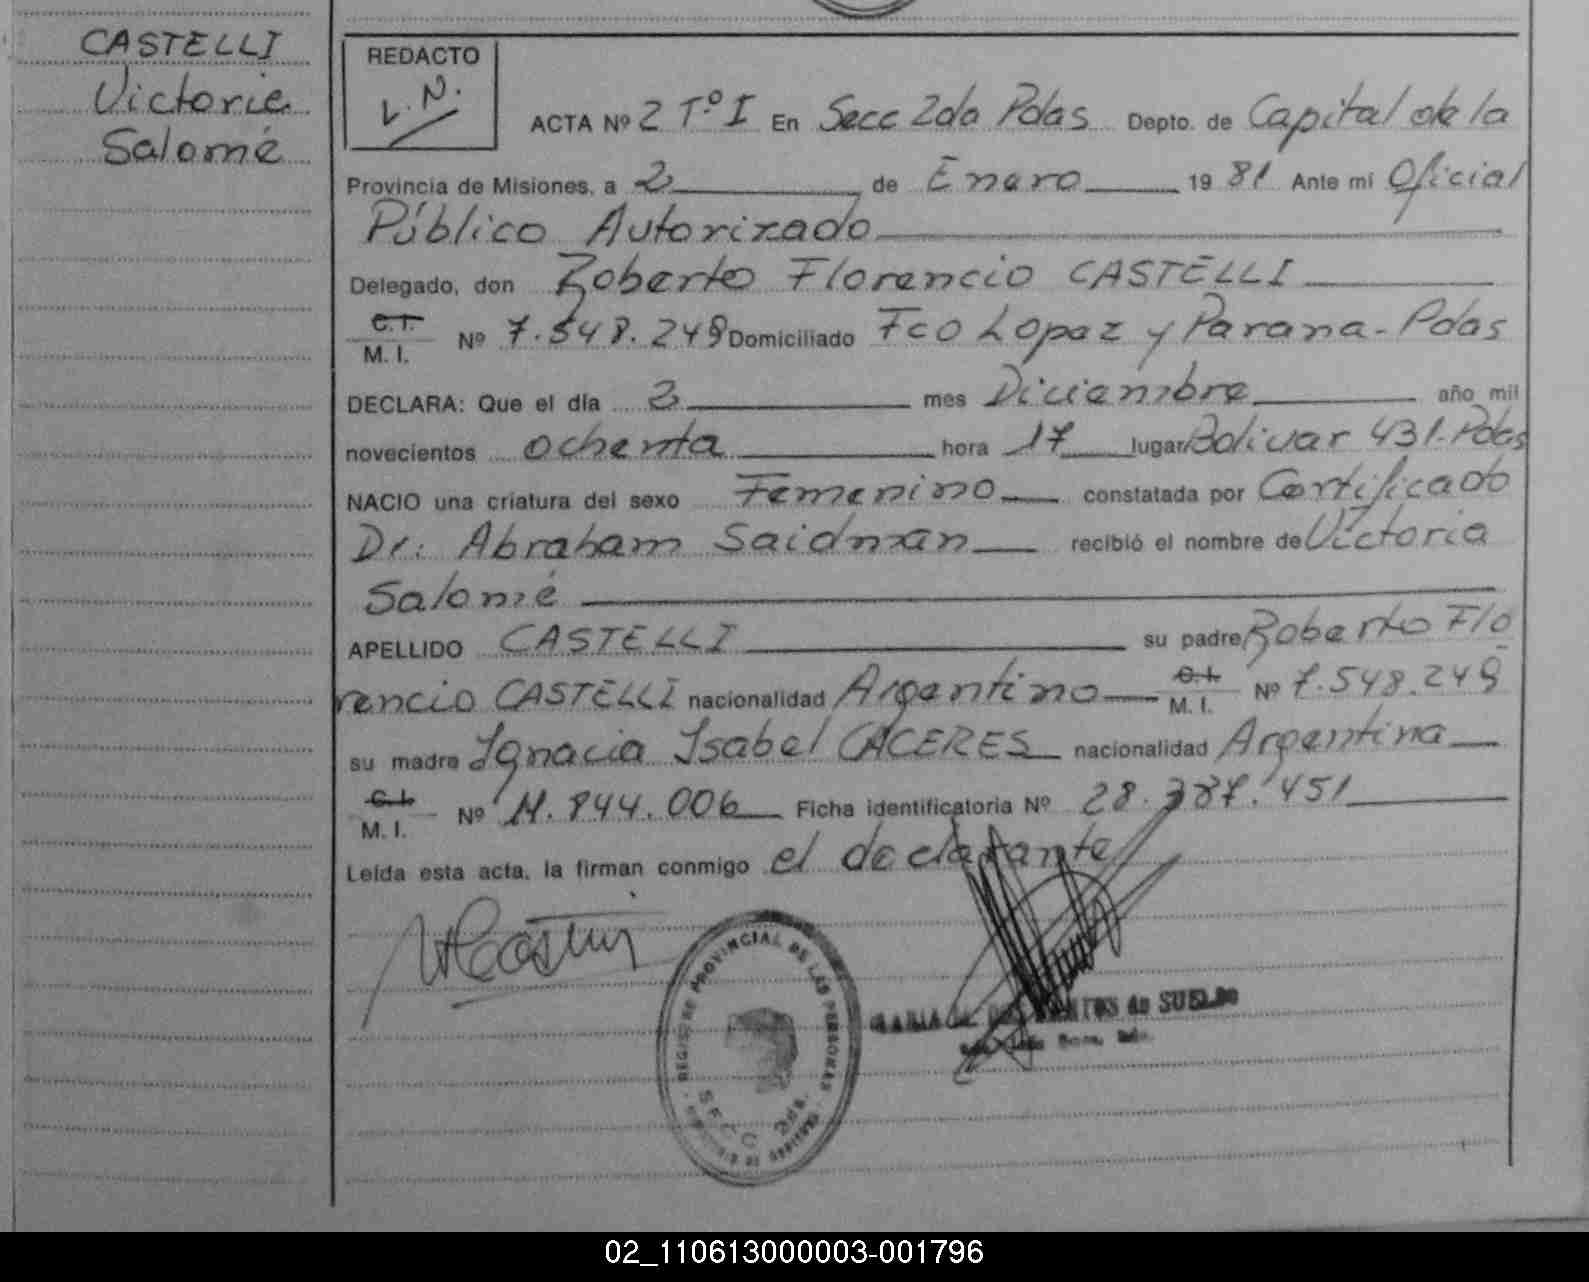 CASTELLI
Victoria
Salomé
REDACTO
L.N.
ACTA Nº 2 Tº I En Secc 2da Pdas Depto. de Capital de la
Provincia de Misiones, a 2 de Enero 19 81 Ante mi Oficial
Público Autorizado
Delegado, don Roberto Florencio CASTELLI
C.I.
M. I. Nº 7.548.249 Domiciliado Fco Lopez y Parana-Pdas
DECLARA: Que el día 2 mes Diciembre año mil
novecientos ochenta hora 17 lugar Bolivar 431-Pdas
NACIO una criatura del sexo Femenino constatada por Certificado
Dr. Abraham Saidman recibió el nombre de Victoria
Salomé
APELLIDO CASTELLI su padre Roberto Flo
rencio CASTELLI nacionalidad Argentino C.I. M. I. Nº 7.548.249
su madre Ignacia Isabel CACERES nacionalidad Argentina
C.I.
M. I. Nº 11.844.006 Ficha identificatoria Nº 28.387.451
Leída esta acta, la firman conmigo el declarante
REGISTRO PROVINCIAL DE LAS PERSONAS
SECC 2da.
MARIA DOS SANTOS de SUELDO
02_110613000003-001796